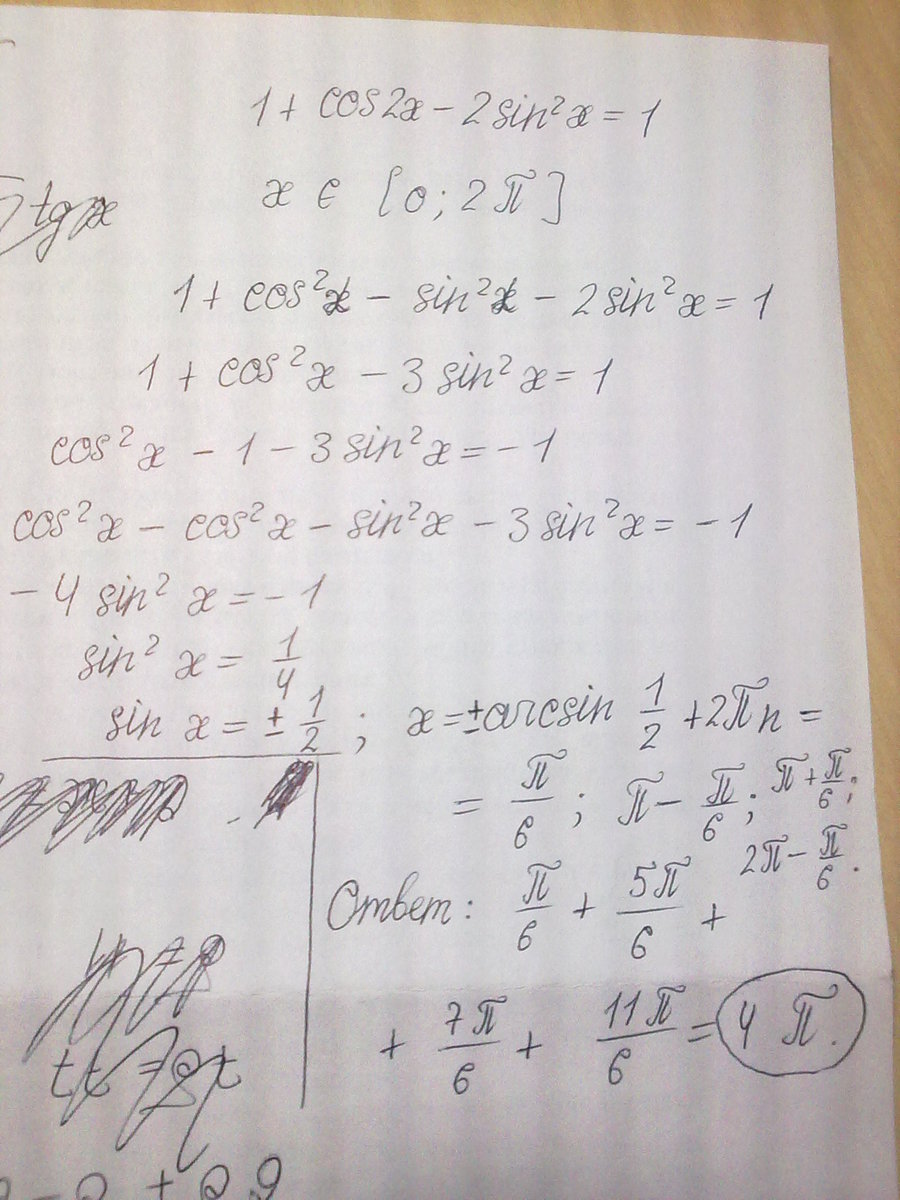 1 + cos2x - 2sin²x = 1
x ∈ [0; 2π]
tgx
1 + cos²x - sin²x - 2sin²x = 1
1 + cos²x - 3sin²x = 1
cos²x - 1 - 3sin²x = -1
cos²x - cos²x - sin²x - 3sin²x = -1
-4 sin² x = -1
sin² x = 1/4
sin x = ± 1/2 ; x = ±arcsin 1/2 + 2πn =
= π/6 ; π - π/6 ; π + π/6 ;
2π - π/6 .
Ответ: π/6 + 5π/6 +
+ 7π/6 + 11π/6 = 4π.